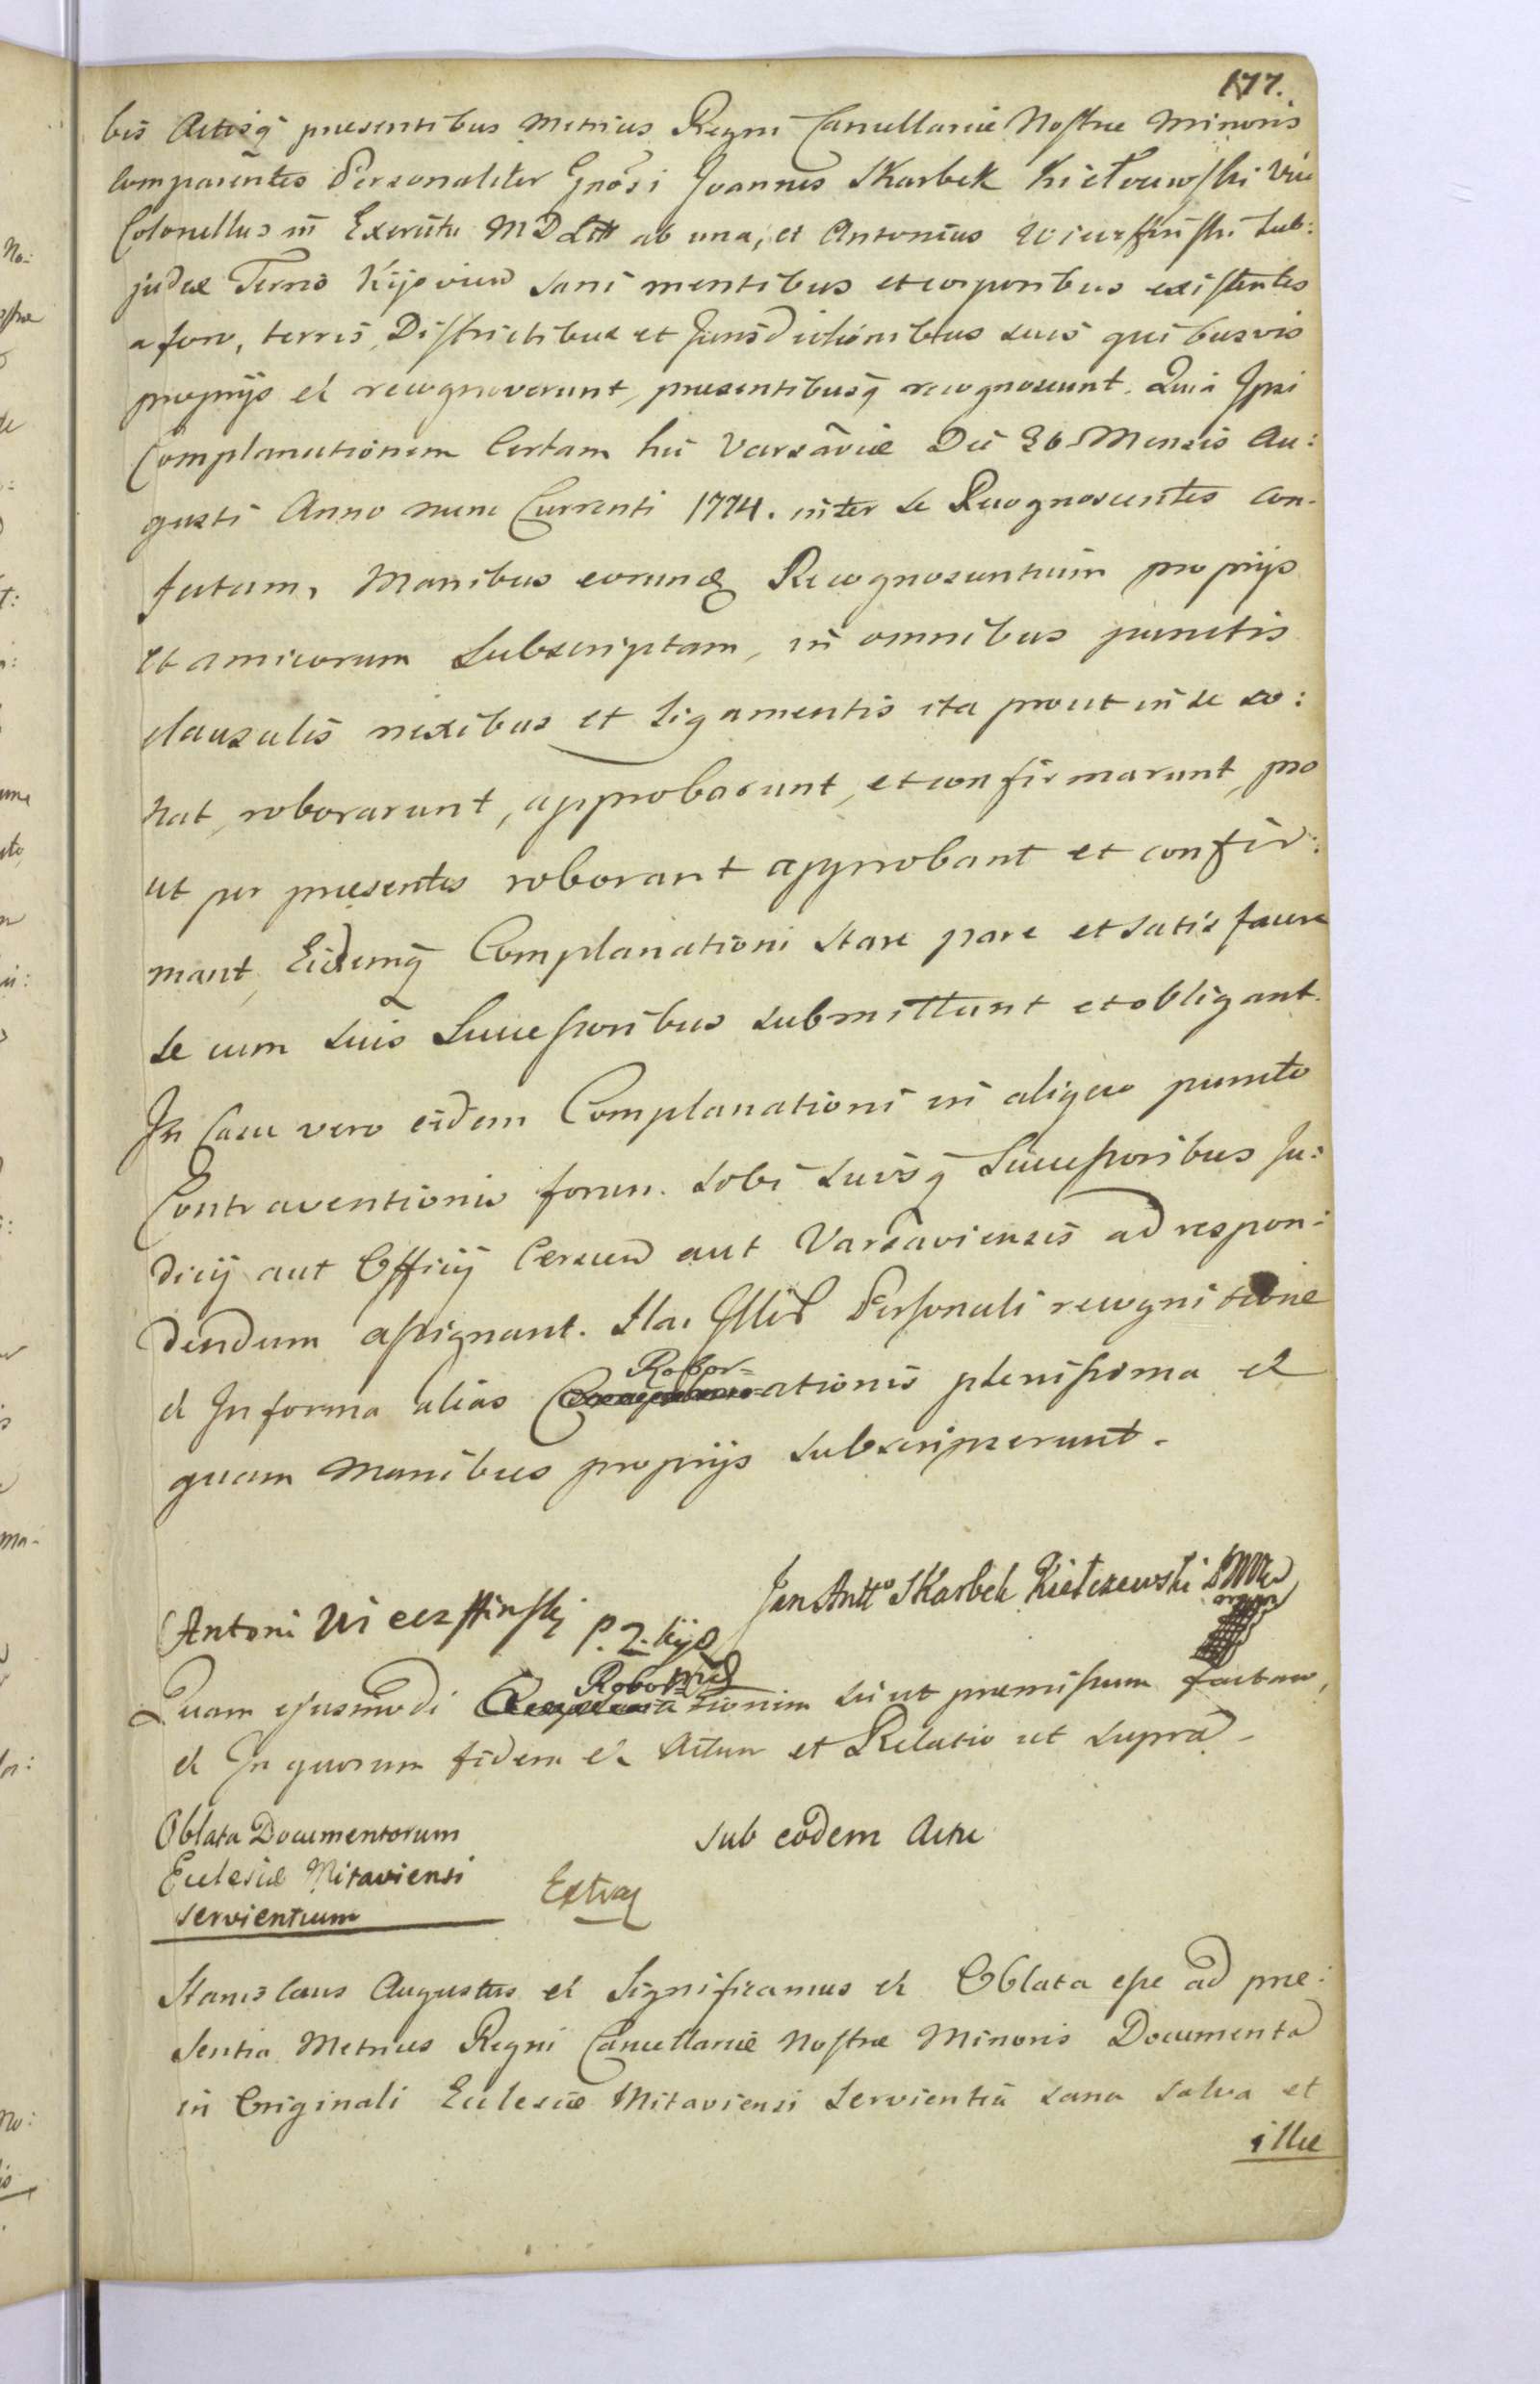 177.
bis Actisq̃ presentibus Metrices Regni Cancellariæ Nostræ Minoris
comparentes Personaliter Gnosi Joannes Skarbek Kiełczewski Vice
Colonellus in Exercitu M D Litt ab una, et Antonius Wiierz Sub:
judex Terrs Kijovien sani mentibus et corporibus existentes
a foro, terris, Districtibus et Jurisdictionibus suis quibusvis
proprijs et recognoverunt, presentibusq̃ recognoscunt. Quia Ipsi
Complanationem Certam hic Varsaviæ Die 26 Mensis Au:
gusti Anno nunc Currenti 1774. inter se Recognoscentes con-
fectam, Manibus eorund Recognoscentium proprijs
et amicorum Subscriptam, in omnibus punctis
clausulis nexibus et Ligamentis ita prout in se so:
nat, roborarunt, approbarunt, et confirmarunt, pro
ut per presentes roborant approbant et confir:
mant, Eidemq̃ Complanationi stare pare et satisfacere
se cum suis Successoribus submittunt et obligant.
In Casu vero eidem Complanationi in aliquo puncto
Contraventionis forum. sobi suisq̃ Successoribus Ju:
dicij aut Officij Cersen aut Varsaviensis ad respon:
dendum assignant. Personali recognitione
et In forma alias Robor=ationis plenissima et
quam Manibus proprijs subscripserunt.
Jan Antt° Skarbek Kiełczewski
Antoni P. Z. Kijo
Quam ejusmodi Roborationem sicut premissum factam,
et In quorum fidem et Actum et Relatio ut supra
Oblata Documentorum
Ecclesiæ Mitaviensi
servientium
sub eodem Actu
Extrad
Stanislaus Augustus et Significamus et Oblata esse ad præ:
sentia Metrices Regni Cancellariæ Nostræ Minoris Documenta
in Originali Ecclesiæ Mitaviensi Servientia sana salva et
illæ